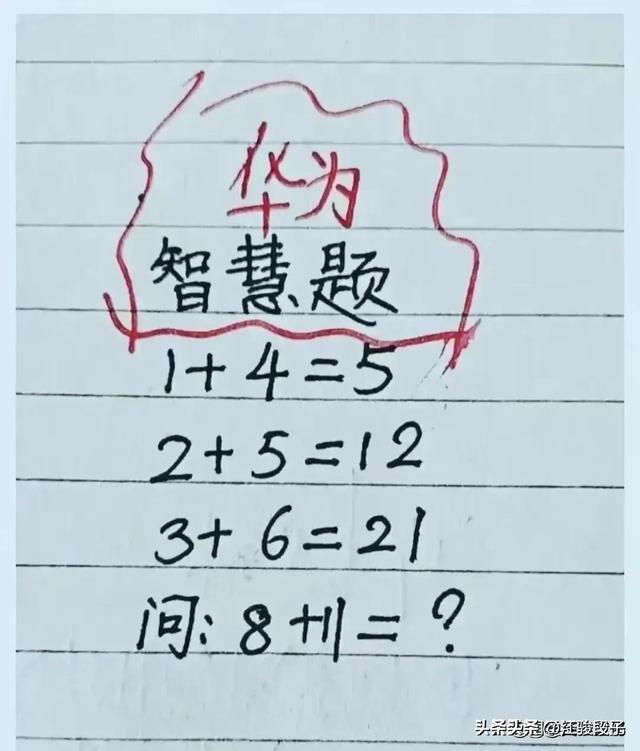 华为
智慧题
1+4=5
2+5=12
3+6=21
问:8+11=?